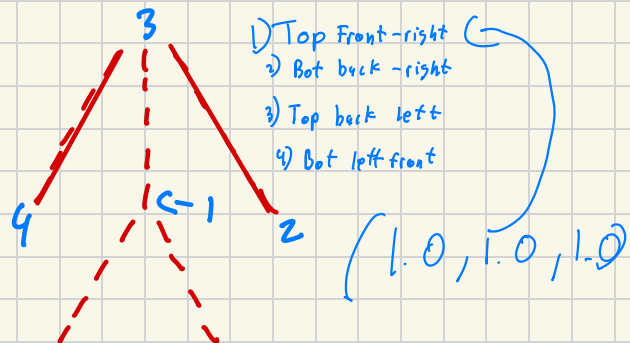 3
1) Top Front-right
2) Bot back-right
3) Top back left
4) Bot left front
4
<- 1
2
(1.0, 1.0, 1.0